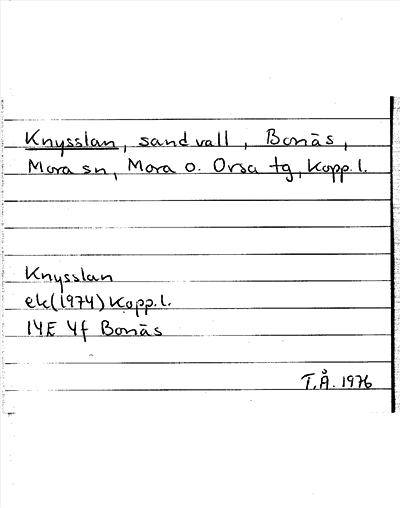 Knysslan, sandvall, Bonäs,
Mora sn, Mora o. Orsa tg, Kopp. l.
Knysslan
ek (1974) Kopp. l.
14E 4f Bonäs
T.Å. 1976